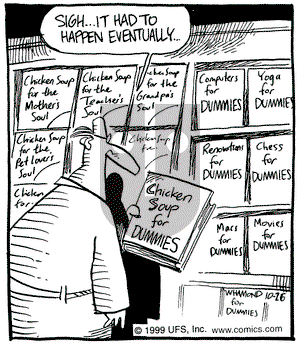 SIGH...IT HAD TO
HAPPEN EVENTUALLY...
Chicken Soup
for the
Mother's
Soul
Chicken Soup
for the
Teacher's
Soul
Chicken Soup
for the
Grandpa's
Soul
Computers
for
DUMMIES
Yoga
for
DUMMIES
Chicken Soup
for the
Pet Lover's
Soul
Chicken Soup
for
Renovations
for
DUMMIES
Chess
for
DUMMIES
Chicken
for
Chicken
Soup
for
DUMMIES
Macs
for
DUMMIES
Movies
for
DUMMIES
WHAMOND 10-26
for
DUMMIES
© 1999 UFS, Inc. www.comics.com